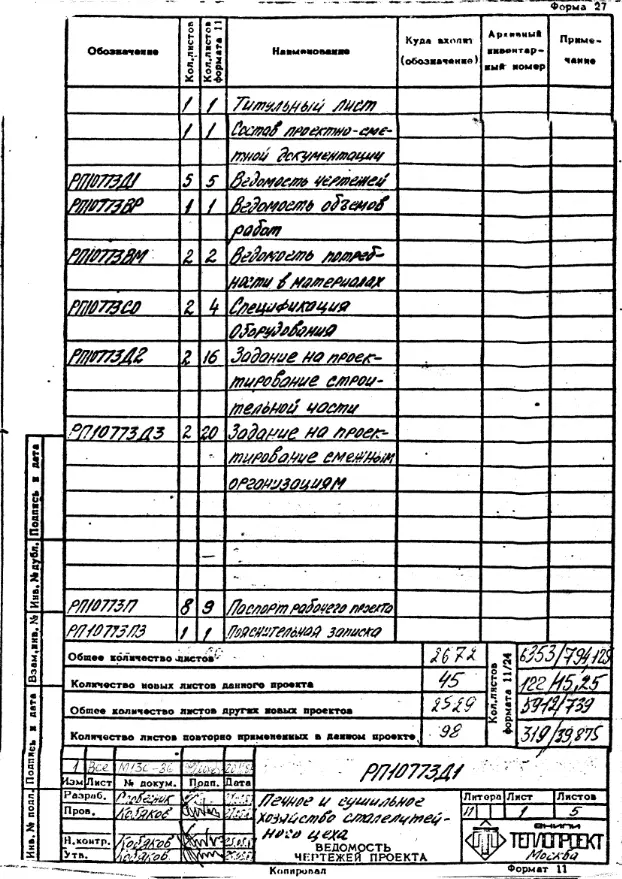 Форма 27
Обозначение Кол.листов Кол.листов формата 11 Наименование Куда входит (обозначение) Архивный инвентарный номер Примечание
1 1 Титульный лист
1 1 Состав проектно-сме-
тной документации
РП10773Д1 5 5 Ведомость чертежей
РП10773ВР 1 1 Ведомость объемов
работ
РП10773ВМ 2 2 Ведомость потреб-
ности в материалах
РП10773СО 2 4 Спецификация
оборудования
РП10773Д2 2 16 Задание на проек-
тирование строи-
тельной части
РП10773Д3 2 20 Задание на проек-
тирование смежным
организациям
РП10773П 8 9 Паспорт рабочего проекта
РП10773ПЗ 1 1 Пояснительная записка
Общее количество листов 2672
Количество новых листов данного проекта 45
Общее количество листов других новых проектов 2529
Количество листов повторно примененных в данном проекте 98
Кол.листов формата 11/24
6353/794,125
122/15,25
5912/739
319/39,875
Инв. № подл. Подпись и дата Взам.инв. № Инв. № дубл. Подпись и дата
1 Все
Изм Лист № докум. Подп. Дата
Разраб.
Пров. Кобяков
Н.контр. Кобяков
Утв. Кобяков
РП10773Д1
Печное и сушильное
хозяйство сталелитей-
ного цеха
ВЕДОМОСТЬ
ЧЕРТЕЖЕЙ ПРОЕКТА
Литера Лист Листов
П 1 5
ВНИПИ
ТЕПЛОПРОЕКТ
Москва
Копировал Формат 11